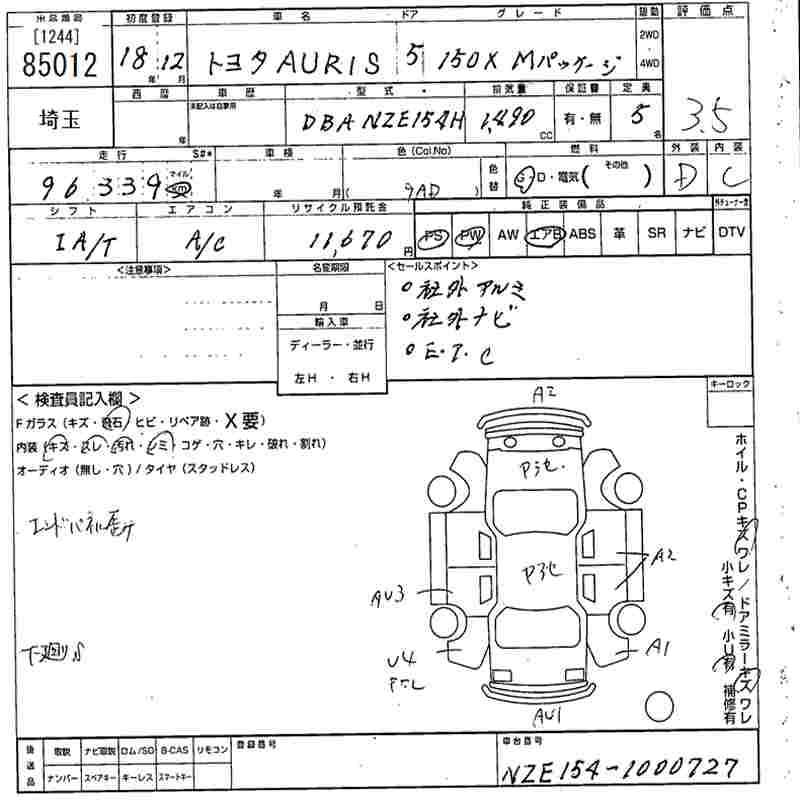 出品番号 初度登録 車名 ドア グレード 駆動 評価点
[1244] 85012 18年 12月 トヨタ AURIS 5 150X Mパッケージ 2WD・4WD 3.5
埼玉 西暦 年 車歴 未記入は自家用 型式 DBA NZE154H 排気量 1,490 CC 保証書 有・無 定員 5名
走行 S#* 車検 色(Col.No) 色替 燃料 外装 内装
96339 マイル km 年 月 ( 9AD ) G・D・電気 (その他 ) D C
シフト エアコン リサイクル預託金 純正装備品
IA/T A/C 11,670円 PS PW AW エアB ABS 革 SR ナビ DTV
<注意事項> 名変期限 <セールスポイント>
月 日
輸入車
ディーラー・並行
左H・右H
○社外アルミ
○社外ナビ
○E.T.C
キーロック
<検査員記入欄>
Fガラス(キズ・飛石 ヒビ・リペア跡・X要)
内装(キズ・スレ・汚れ・シミ コゲ・穴・キレ・破れ・割れ)
オーディオ(無し・穴)/タイヤ(スタッドレス)
エンドパネル歪ナ
下廻りS
A2
AU3
A2
U4
A1
AU1
ホイル・CPキズワレ/ドアミラーキズワレ
小キズ有 小U有 補修有
後送品 取説 ナビ取説 ロム/SD B-CAS リモコン 登録番号 車台番号
ナンバー スペアキー キーレス スマートキー NZE154-1000727